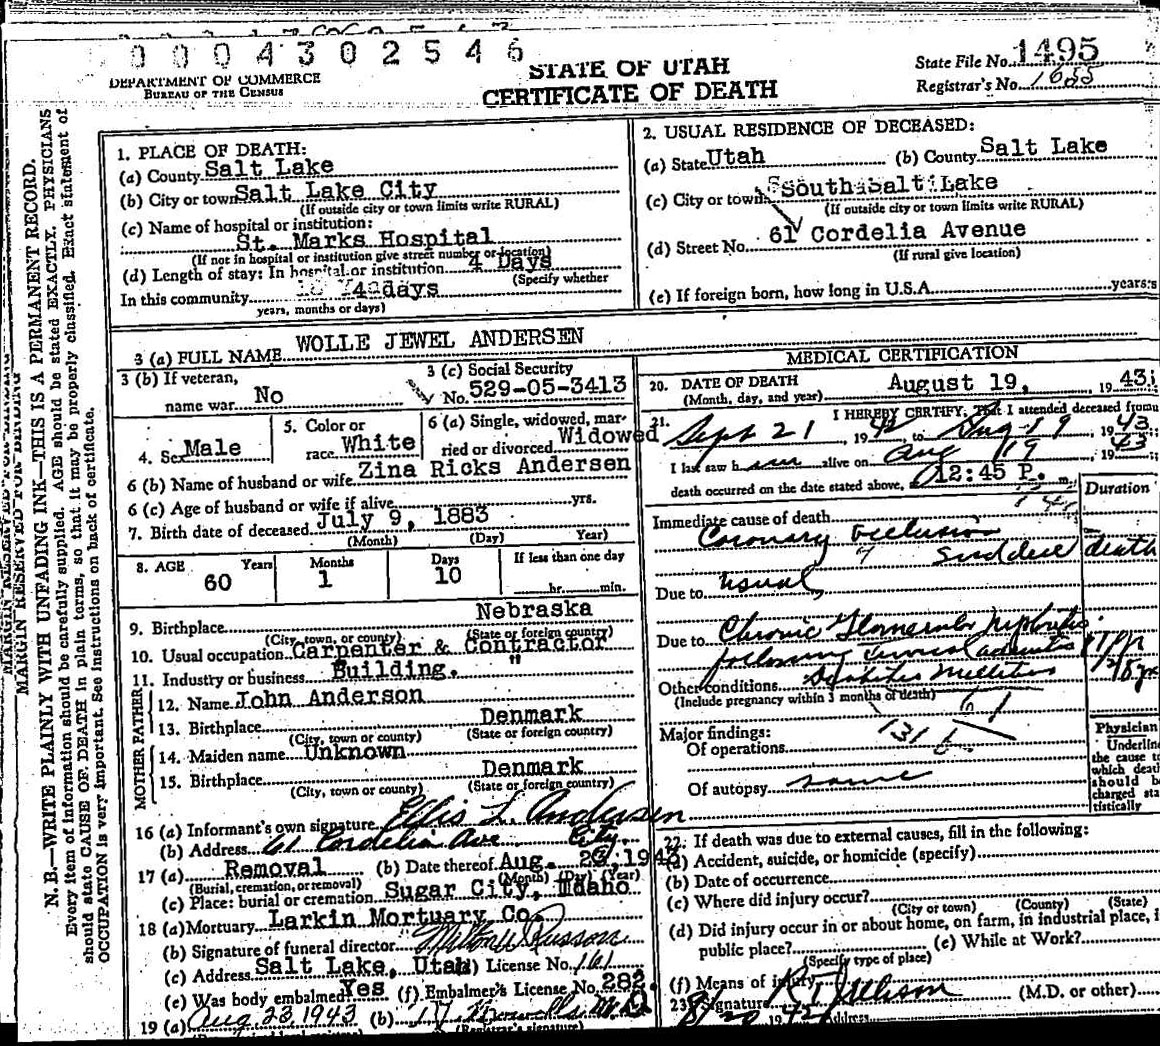 0 0 0 4 3 0 2 5 4 6
DEPARTMENT OF COMMERCE
BUREAU OF THE CENSUS
STATE OF UTAH
CERTIFICATE OF DEATH
State File No. 1495
Registrar's No. 1655
MARGIN RESERVED FOR BINDING
N. B.—WRITE PLAINLY WITH UNFADING INK—THIS IS A PERMANENT RECORD.
Every item of information should be carefully supplied. AGE should be stated EXACTLY. PHYSICIANS
should state CAUSE OF DEATH in plain terms, so that it may be properly classified. Exact statement of
OCCUPATION is very important. See instructions on back of certificate.
1. PLACE OF DEATH:
(a) County Salt Lake
(b) City or town Salt Lake City
(If outside city or town limits write RURAL)
(c) Name of hospital or institution:
St. Marks Hospital
(If not in hospital or institution give street number or location)
(d) Length of stay: In hospital or institution 4 Days
(Specify whether
In this community days
years, months or days)
2. USUAL RESIDENCE OF DECEASED:
(a) State Utah (b) County Salt Lake
(c) City or town South Salt Lake
(If outside city or town limits write RURAL)
(d) Street No. 61 Cordelia Avenue
(If rural give location)
(e) If foreign born, how long in U.S.A. years
3 (a) FULL NAME WOLLE JEWEL ANDERSEN
3 (b) If veteran,
name war No
3 (c) Social Security
No. 529-05-3413
4. Sex Male
5. Color or
race White
6 (a) Single, widowed, mar-
ried or divorced Widowed
6 (b) Name of husband or wife Zina Ricks Andersen
6 (c) Age of husband or wife if alive yrs.
7. Birth date of deceased July 9, 1883
(Month) (Day) Year)
8. AGE Years Months Days If less than one day
60 1 10 hr. min.
9. Birthplace Nebraska
(City, town, or county) (State or foreign country)
10. Usual occupation Carpenter & Contractor
11. Industry or business Building. "
MOTHER FATHER
12. Name John Anderson
13. Birthplace Denmark
(City, town or county) (State or foreign country)
14. Maiden name Unknown
15. Birthplace Denmark
(City, town or county) (State or foreign country)
16 (a) Informant's own signature Ellis L. Andersen
(b) Address 61 Cordelia Ave City.
17 (a) Removal (b) Date thereof Aug. 23, 1943
(Burial, cremation, or removal) (Month) (Day) (Year)
(c) Place: burial or cremation Sugar City, Idaho
18 (a) Mortuary Larkin Mortuary Co.
(b) Signature of funeral director Russon
(c) Address Salt Lake, Utah (d) License No. 161
(e) Was body embalmed Yes (f) Embalmer's License No. 282
19 (a) Aug 23, 1943 (b)
(Registrar's signature)
MEDICAL CERTIFICATION
20. DATE OF DEATH August 19, 1943
(Month, day, and year)
21. I HEREBY CERTIFY, That I attended deceased from
Sept 21, 1942 to Aug 19 1943
I last saw him alive on Aug 19, 1943
death occurred on the date stated above, 12:45 P. m.
Duration
Immediate cause of death
Coronary Occlusion sudden death
Due to usual
Due to Chronic Glomerular Nephritis
following
Other conditions Diabetes Mellitus
(Include pregnancy within 3 months of death)
61
Major findings: 131
Of operations
Of autopsy same
Physician
Underline
the cause to
which death
should be
charged sta-
tistically
22. If death was due to external causes, fill in the following:
(a) Accident, suicide, or homicide (specify)
(b) Date of occurrence
(c) Where did injury occur?
(City or town) (County) (State)
(d) Did injury occur in or about home, on farm, in industrial place, i
public place? (e) While at Work?
(Specify type of place)
(f) Means of injury
23. Signature (M.D. or other)
8/20 19 Address